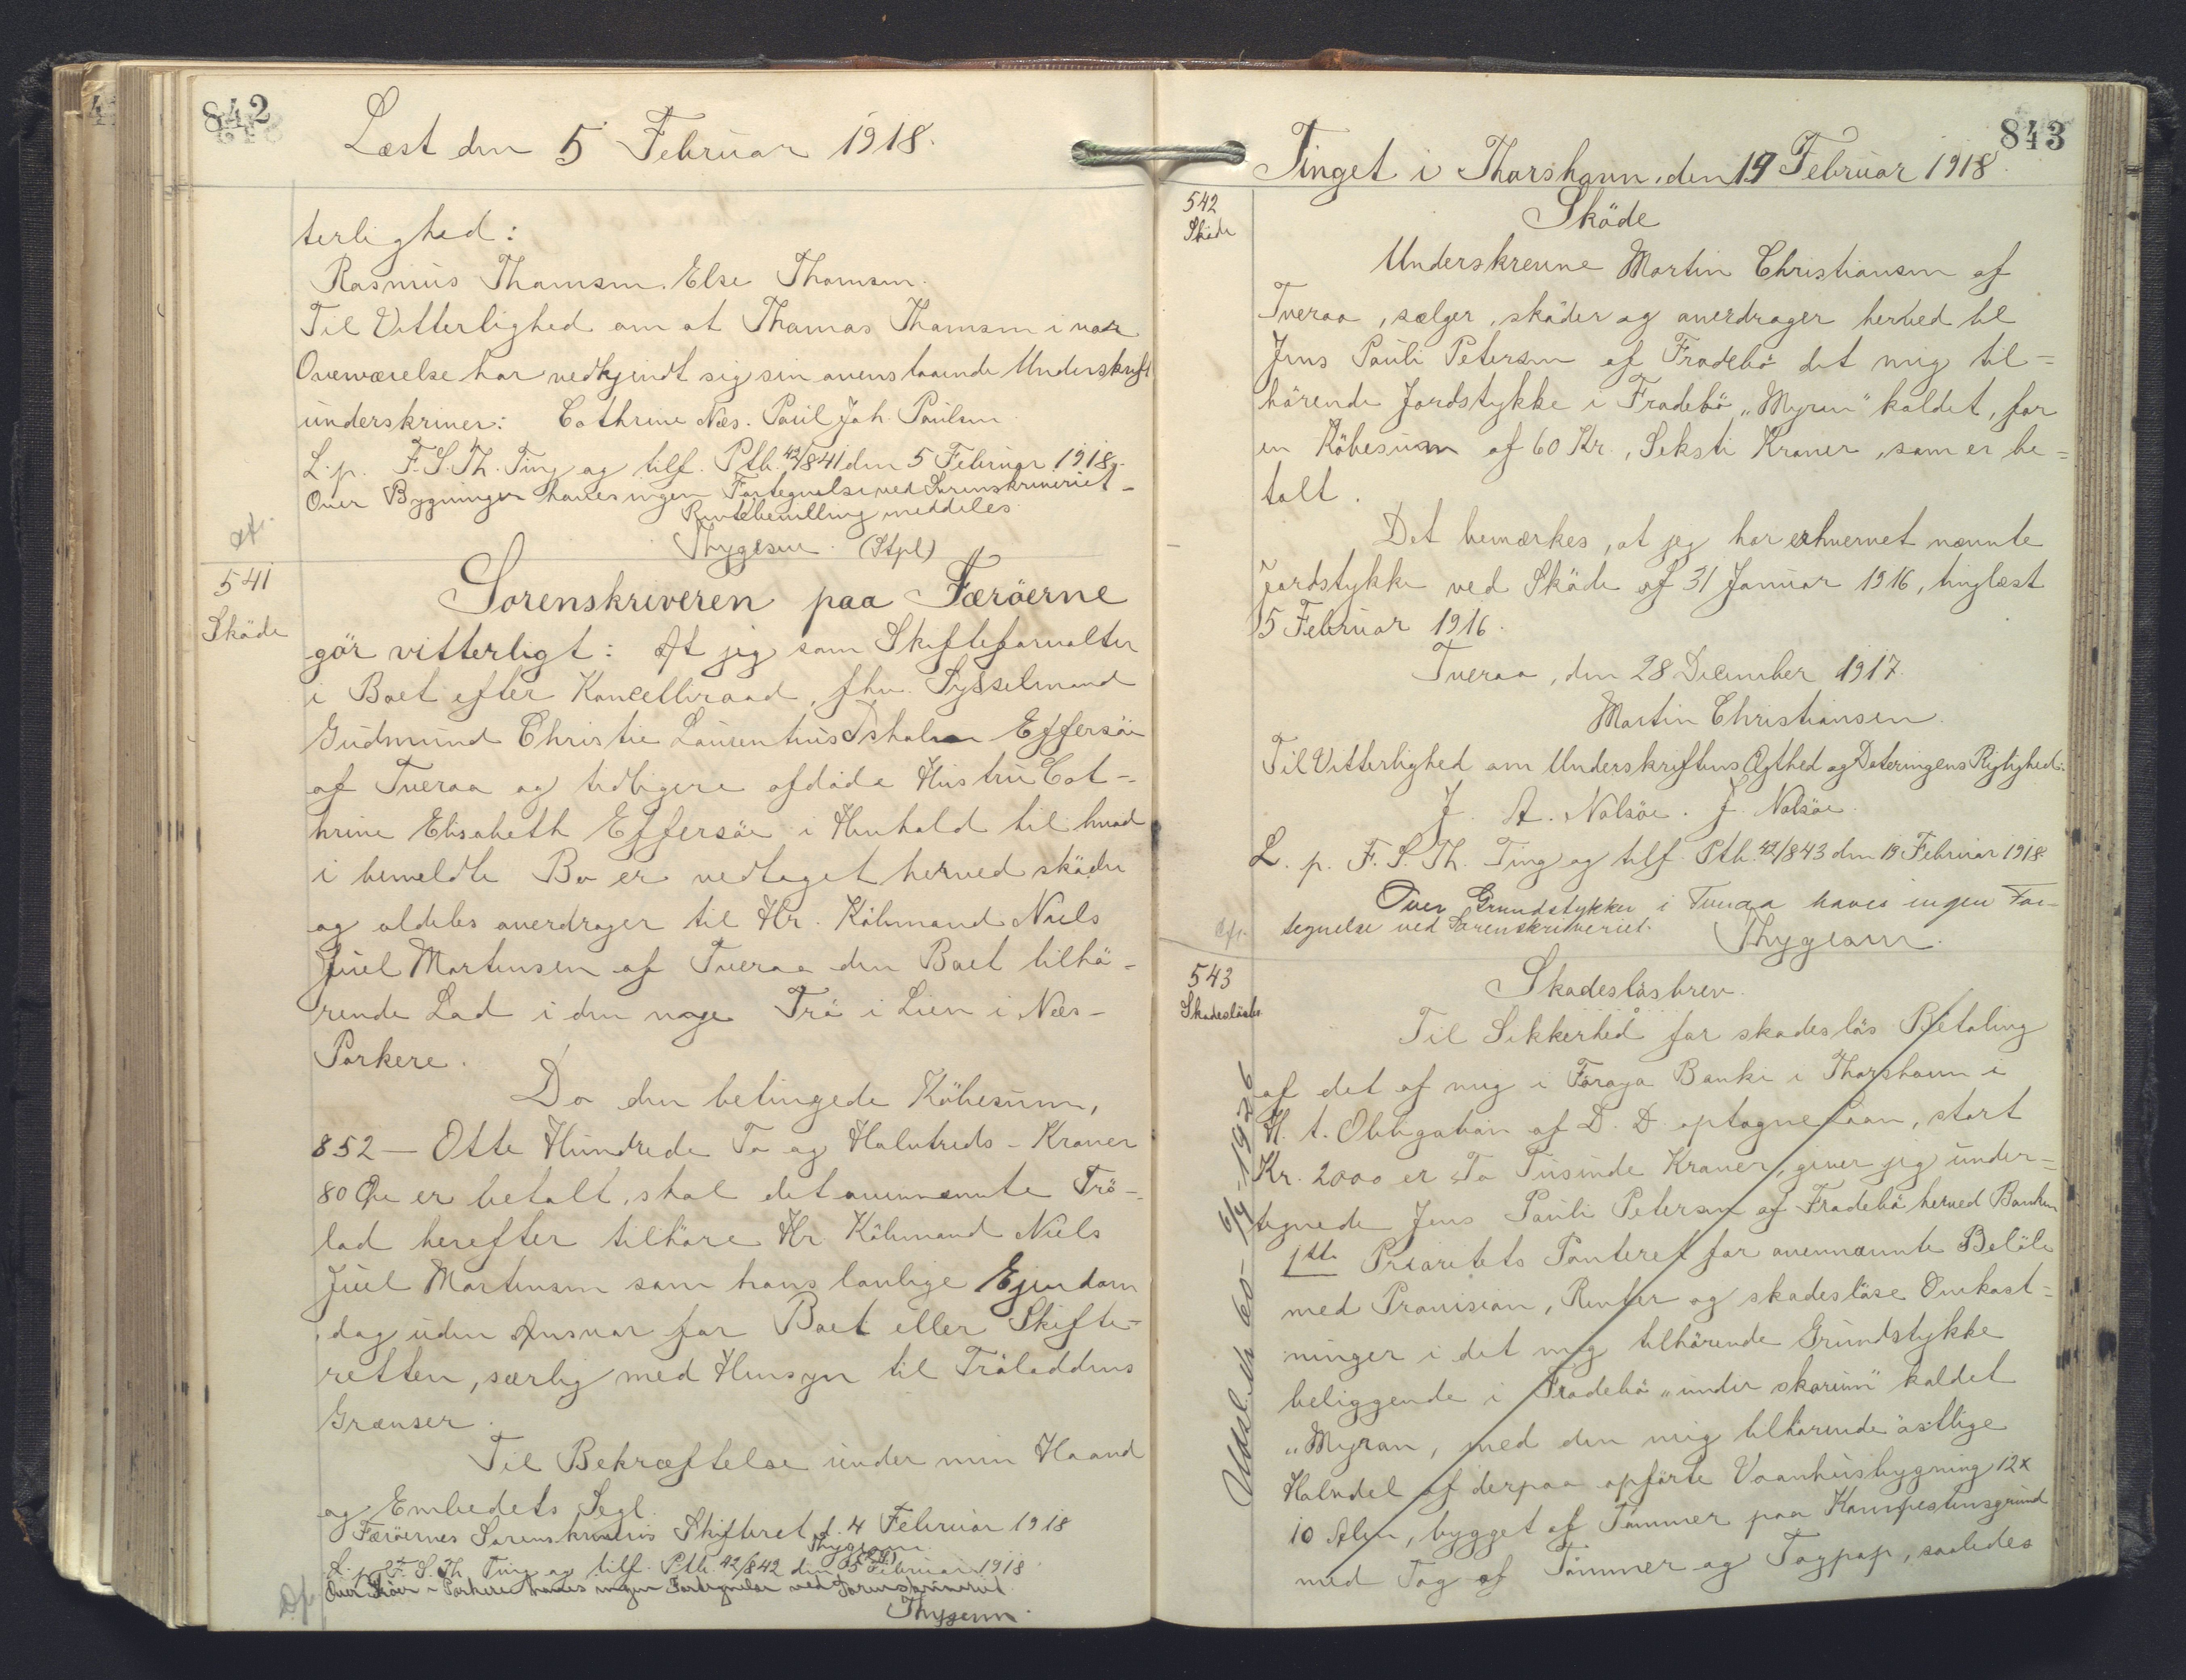 842
Læst den 5 Februar 1918.
terlighed:
Rasmus Thomsen. Else Thomsen.
Til Vitterlighed om at Thomas Thomsen i vor
Overværelse har vedkjendt sig sin ovenstaaende Underskrift
underskriver: Cathrine Næs. Poul Joh. Poulsen
L. p. F. S. Th. Ting og tilf. Ptb. 42/841 den 5 Februar 1918.
Over Bygninger haves ingen Fortegnelse ved Sorenskriveriet -
Rentebevilling meddeles
Thygesen. (Stpl)
541
Sköde
Sorenskriveren paa Færöerne
gör vitterligt: At jeg som Skifteforvalter
i Boet efter Kancelliraad, fhv. Sysselmand
Gudmund Christie Laurentius Isholm Effersöe
af Tveraa og tidligere afdöde Hustru Cat-
hrine Elisabeth Effersöe i Henhold til hvad
i bemeldte Bo er vedtaget herved sköder
og aldeles overdrager til Hr. Köbmand Niels
Juel Mortensen af Tveraa den Boet tilhö-
rende Lod i den nye Trö i Lien i Næs-
Porkere.
Da den betingede Köbesum,
852 — Otte Hundrede To og Halvtreds - Kroner
80 Öre er betalt, skal det ovennævnte Trö-
lod herefter tilhöre Hr. Köbmand Niels
Juel Mortensen som hans lovlige Ejendom
dog uden Ansvar for Boet eller Skifte-
retten, særlig med Hensyn til Trölöddens
Grænser.
Til Bekræftelse under min Haand
og Embedets Segl.
Færöernes Sorenskriveris Skifteret d. 4 Februar 1918
Thygesen
L. p. F. S. Th. Ting og tilf. Ptb. 42/842 den 5 Februar 1918
Over Tröer i Porkere haves ingen Fortegnelse ved Sorenskriveriet.
Thygesen.
843
Tinget i Thorshavn, den 19 Februar 1918.
542
Sköde
Sköde
Underskrevne Martin Christiansen af
Tveraa, sælger, sköder og overdrager herved til
Jens Pauli Petersen af Frodebö det mig til=
hörende Jordstykke i Frodebö „Myren" kaldet, for
en Köbesum af 60 Kr., Seksti Kroner, som er be=
talt.
Det bemærkes, at jeg har erhvervet nævnte
Jordstykke ved Sköde af 31 Januar 1916, tinglæst
15 Februar 1916.
Tveraa, den 28 December 1917.
Martin Christiansen.
Til Vitterlighed om Underskriftens Ægthed og Dateringens Rigtighed:
J. A. Nolsöe. J. Nolsöe.
L. p. F. S. Th. Ting og tilf. Ptb. 42/843 den 19 Februar 1918.
Over Grundstykker i Tveraa haves ingen For-
tegnelse ved Sorenskriveriet.
Thygesen.
543
Skadeslösbr.
Skadeslösbrev.
Til Sikkerhed for skadeslös Betaling
af det af mig i Föroya Banki i Thorshavn i
H. t. Obligation af D. D. optagne Laan, stort
Kr. 2000 er To Tusinde Kroner, giver jeg under=
tegnede Jens Pauli Petersen af Frodebö herved Banken
1ste Prioritets Panteret for ovennævnte Belöb
med Provision, Renter og skadeslöse Omkost=
ninger i det mig tilhörende Grundstykke
beliggende i Frodebö „undir skorum" kaldet
„Myran, med den mig tilhörende östlige
Halvdel af derpaa opförte Vaanhusbygning 12x
10 Alen, bygget af Tömmer paa Kampestensgrund
med Tag af Tömmer og Tagpap, saaledes